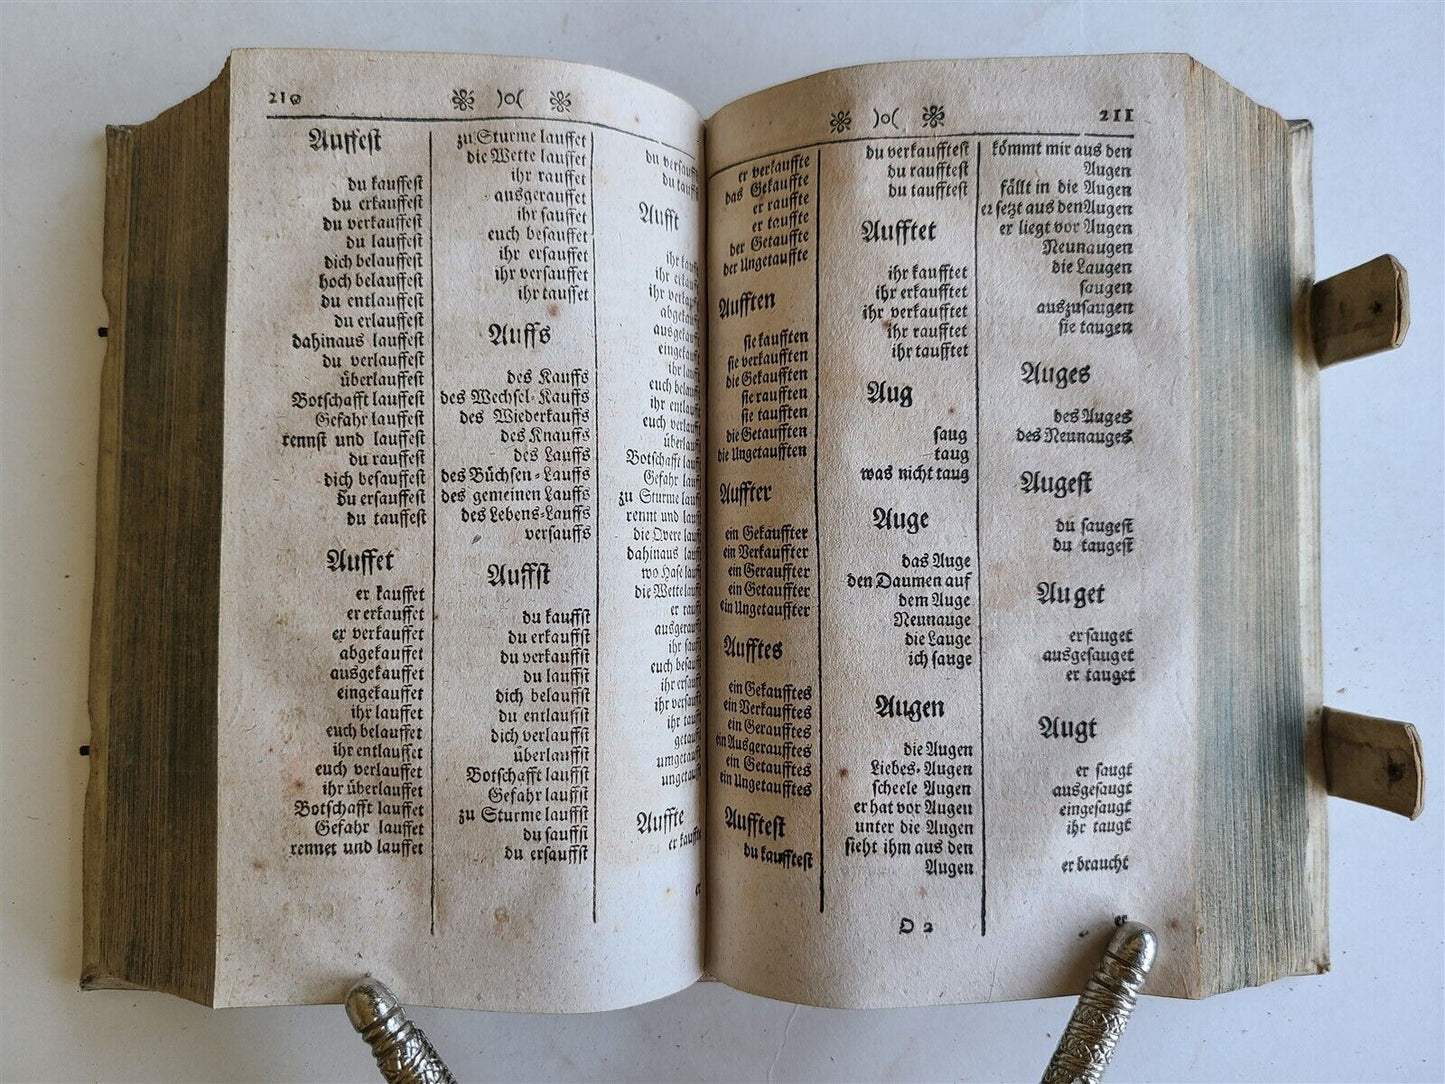 210
)o(
Auffest
du kauffest
du erkauffest
du verkauffest
du lauffest
dich belauffest
hoch belauffest
du entlauffest
du erlauffest
dahinaus lauffest
du verlauffest
überlauffest
Botschafft lauffest
Gefahr lauffest
rennst und lauffest
du rauffest
dich besauffest
du ersauffest
du tauffest
Auffet
er kauffet
er erkauffet
er verkauffet
abgekauffet
ausgekauffet
eingekauffet
ihr lauffet
euch belauffet
ihr entlauffet
euch verlauffet
ihr überlauffet
Botschafft lauffet
Gefahr lauffet
rennet und lauffet
zu Sturme lauffet
die Wette lauffet
ihr rauffet
ausgerauffet
ihr sauffet
euch besauffet
ihr ersauffet
ihr versauffet
ihr tauffet
Auffs
des Kauffs
des Wechsel-Kauffs
des Wiederkauffs
des Knauffs
des Lauffs
des Büchsen-Lauffs
des gemeinen Lauffs
des Lebens-Lauffs
versauffs
Auffst
du kauffst
du erkauffst
du verkauffst
du lauffst
dich belauffst
du entlauffst
dich verlauffst
überlauffst
Botschafft lauffst
Gefahr lauffst
zu Sturme lauffst
du sauffst
du ersauffst
du
du
Aufft
ihr
ihr
ihr
euch
ihr
euch
Botschafft
Gefahr
zu Sturme
rennt und
die Qvere
dahinaus
wo Hase
die Wette
er
ihr
euch
ihr
ihr
ihr
Auffte
er
211
)o(
er verkauffte
das Gekauffte
er rauffte
er tauffte
der Getauffte
der Ungetauffte
Aufften
sie kaufften
sie verkaufften
die Gekaufften
sie raufften
sie taufften
die Getaufften
die Ungetaufften
Auffter
ein Gekauffter
ein Verkauffter
ein Gerauffter
ein Getauffter
ein Ungetauffter
Aufftes
ein Gekaufftes
ein Verkaufftes
ein Geraufftes
ein Ausgeraufftes
ein Getaufftes
ein Ungetaufftes
Aufftest
du kaufftest
du verkaufftest
du raufftest
du taufftest
Aufftet
ihr kaufftet
ihr erkaufftet
ihr verkaufftet
ihr raufftet
ihr taufftet
Aug
saug
taug
was nicht taug
Auge
das Auge
den Daumen auf
dem Auge
Neunauge
die Lauge
ich sauge
Augen
die Augen
Liebes-Augen
scheele Augen
er hat vor Augen
unter die Augen
sieht ihm aus den
Augen
D 2
kömmt mir aus den
Augen
fällt in die Augen
er setzt aus den Augen
er liegt vor Augen
Neunaugen
die Laugen
saugen
auszusaugen
sie taugen
Auges
des Auges
des Neunauges
Augest
du saugest
du taugest
Auget
er sauget
ausgesauget
er tauget
Augt
er saugt
ausgesaugt
eingesaugt
ihr taugt
er braucht
er